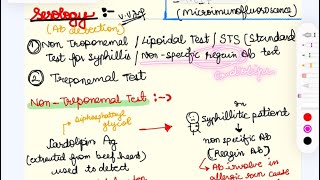 Serology :- v.v.imp
(Ab detection)
(Microimmunofluorescence)
① Non Troponemal / Lipoidal Test / STS (Standard
Test for Syphilli's / Non-specific Reagin Ab test
② Treponemal Test
Non-Treponemal Test :->
diphosphatidyl
glycerol
Cardiolipin Ag
(extracted from beef heart)
used to detect
In
Syphillitic patient
↓
non specific Ab
(Reagin Ab)
↳ Ab involve in
allergic rxn cause